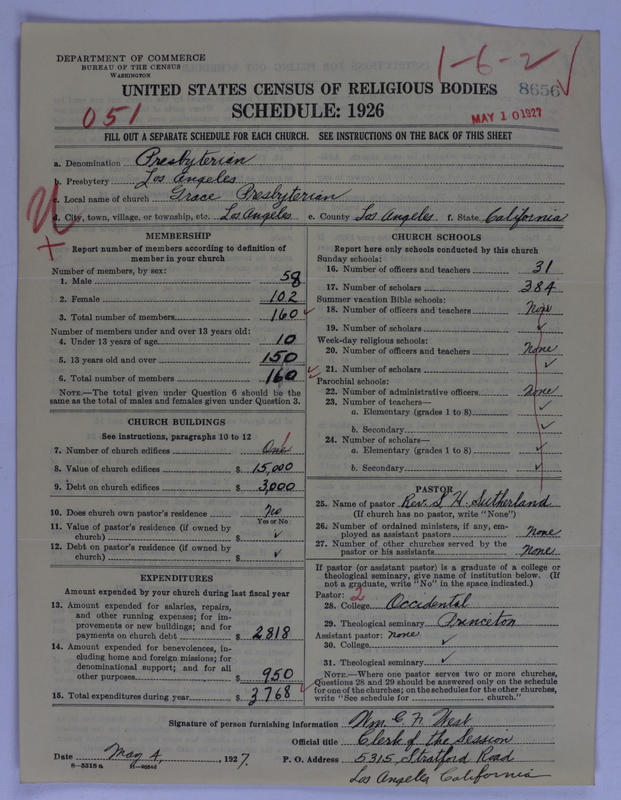 DEPARTMENT OF COMMERCE
BUREAU OF THE CENSUS
WASHINGTON
1-6-2
UNITED STATES CENSUS OF RELIGIOUS BODIES
8656
051
SCHEDULE: 1926
MAY 10 1927
FILL OUT A SEPARATE SCHEDULE FOR EACH CHURCH. SEE INSTRUCTIONS ON THE BACK OF THIS SHEET
a. Denomination Presbyterian
b. Presbytery Los Angeles
c. Local name of church Grace Presbyterian
d. City, town, village, or township, etc. Los Angeles e. County Los Angeles. f. State California
MEMBERSHIP
Report number of members according to definition of
member in your church
Number of members, by sex:
1. Male 58
2. Female 102
3. Total number of members 160
Number of members under and over 13 years old:
4. Under 13 years of age 10
5. 13 years old and over 150
6. Total number of members 160
NOTE.—The total given under Question 6 should be the
same as the total of males and females given under Question 3.
CHURCH BUILDINGS
See instructions, paragraphs 10 to 12
7. Number of church edifices One 1
8. Value of church edifices $ 15,000
9. Debt on church edifices $ 3,000
10. Does church own pastor's residence No
Yes or No
11. Value of pastor's residence (if owned by
church) $ ✓
12. Debt on pastor's residence (if owned by
church) $ ✓
EXPENDITURES
Amount expended by your church during last fiscal year
13. Amount expended for salaries, repairs,
and other running expenses; for im-
provements or new buildings; and for
payments on church debt $ 2818
14. Amount expended for benevolences, in-
cluding home and foreign missions; for
denominational support; and for all
other purposes $ 950
15. Total expenditures during year $ 3768
CHURCH SCHOOLS
Report here only schools conducted by this church
Sunday schools:
16. Number of officers and teachers 31
17. Number of scholars 384
Summer vacation Bible schools:
18. Number of officers and teachers None
19. Number of scholars ✓
Week-day religious schools:
20. Number of officers and teachers None
21. Number of scholars ✓
Parochial schools:
22. Number of administrative officers None
23. Number of teachers—
a. Elementary (grades 1 to 8) ✓
b. Secondary ✓
24. Number of scholars—
a. Elementary (grades 1 to 8) ✓
b. Secondary ✓
PASTOR
25. Name of pastor Rev. S. H. Sutherland
(If church has no pastor, write "None")
26. Number of ordained ministers, if any, em-
ployed as assistant pastors None
27. Number of other churches served by the
pastor or his assistants None
If pastor (or assistant pastor) is a graduate of a college or
theological seminary, give name of institution below. (If
not a graduate, write "No" in the space indicated.)
Pastor: 2
28. College Occidental
29. Theological seminary Princeton
Assistant pastor: None
30. College ✓
31. Theological seminary ✓
NOTE.—Where one pastor serves two or more churches,
Questions 28 and 29 should be answered only on the schedule
for one of the churches; on the schedules for the other churches,
write "See schedule for church."
Signature of person furnishing information Wm. C. N. West
Official title Clerk of the Session
Date May 4, 1927. P. O. Address 5315, Stratford Road
Los Angeles California